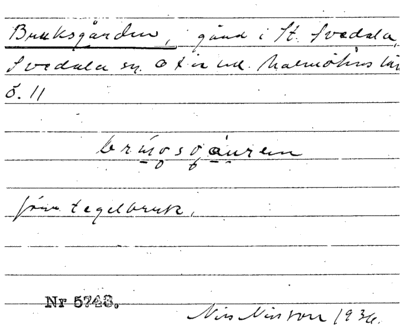 Bruksgården, gård i St. Svedala,
Svedala sn. Oxie hd. Malmöhus län
5. 11
förr tegelbruk.
Nr 5743.
Nils Nilsson 1936.